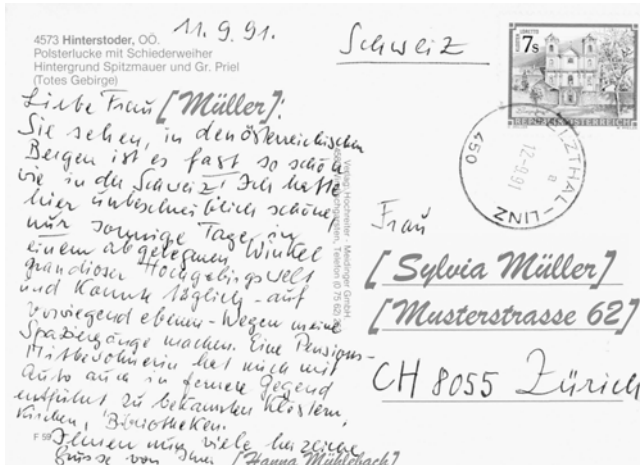 11.9.91.
4573 Hinterstoder, OÖ.
Polsterlucke mit Schiederweiher
Hintergrund Spitzmauer und Gr. Priel
(Totes Gebirge)
Liebe Frau [Müller]:
Sie sehen, in den österreichischen
Bergen ist es fast so schön
wie in der Schweiz! Ich hatte
hier unbeschreiblich schöne,
nur sonnige Tage in
einem abgelegenen Winkel
grandioser Hochgebirgswelt
und konnte täglich - auf
vorwiegend ebenen - Wegen meine
Spaziergänge machen. Eine Pensions-
Mitbewohnerin hat mich mit
Auto auch in fernere Gegend
entführt zu bekannten Klöstern,
Kirchen, Bibliotheken.
Ihnen nun viele herzliche
Grüsse von Ihrer [Hanna Mühlebach]
F 59
Verlag: Hochreiter - Meidinger GmbH
Telefon (0 75 62)
Schweiz
7s
REPUBLIK ÖSTERREICH
SELZTHAL-LINZ
12-9.91
a
450
Frau
[Sylvia Müller]
[Musterstrasse 62]
CH 8055 Zürich